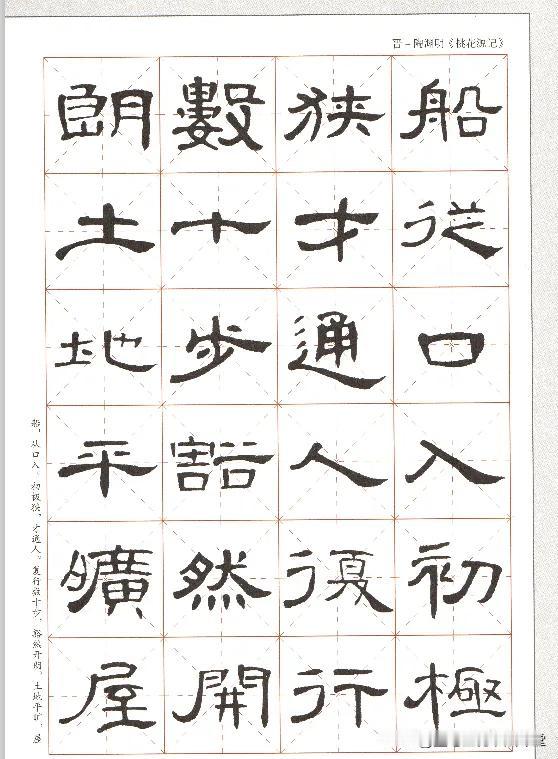 晋-陶渊明《桃花源记》
船從口入初極
狹才通人復行
數十步豁然開
朗土地平曠屋
船，从口入。初极狭，才通人。复行数十步，豁然开朗。土地平旷，屋